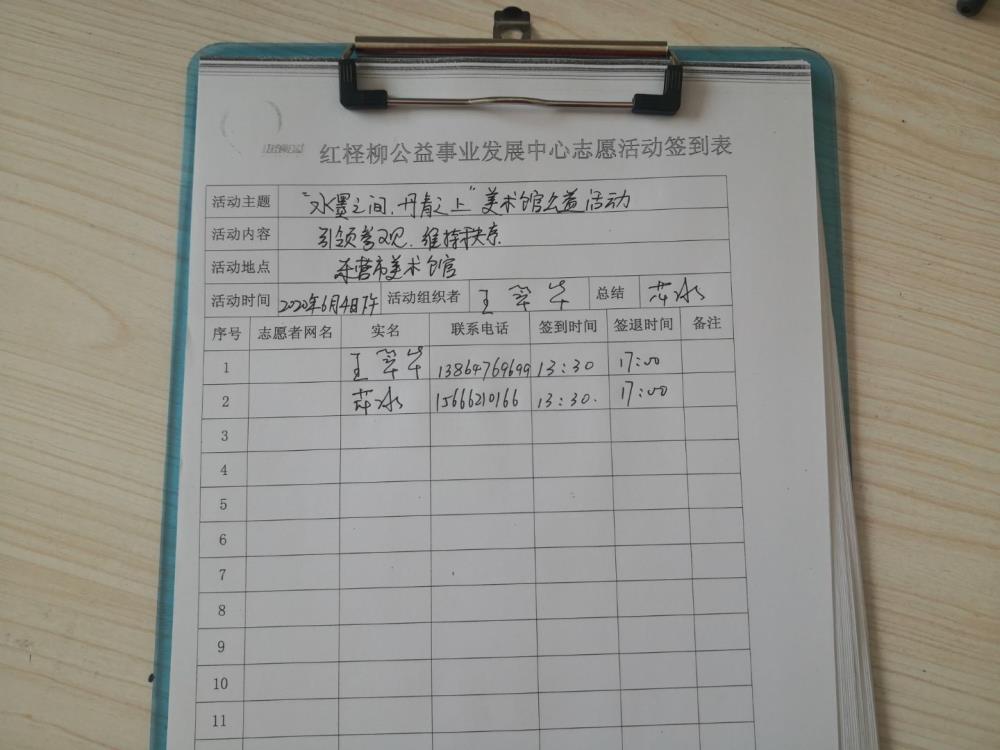 红柽柳公益事业发展中心志愿活动签到表
活动主题 "水墨之间，丹青之上"美术馆公益活动
活动内容 引领参观、维持秩序
活动地点 东营市美术馆
活动时间 2020年6月4日下午 活动组织者 王翠华 总结 萍水
序号 志愿者网名 实名 联系电话 签到时间 签退时间 备注
1 王翠华 13864769699 13:30 17:00
2 萍水 15666210166 13:30. 17:00
3
4
5
6
7
8
9
10
11